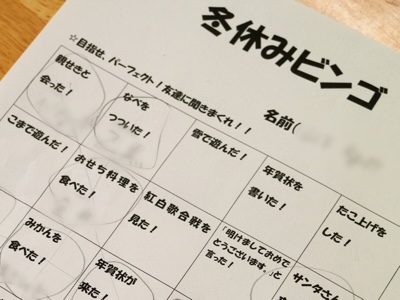 冬休みビンゴ
☆目指せ、パーフェクト！友達に聞きまくれ！！
名前(
親せきと
会った！
なべを
つついた！
雪で遊んだ！
年賀状を
書いた！
たこ上げを
した！
こまで遊んだ！
おせち料理を
食べた！
紅白歌合戦を
見た！
「明けましておめで
とうございます。」と
言った！
サンタさん
みかんを
食べた！
年賀状が
来た！